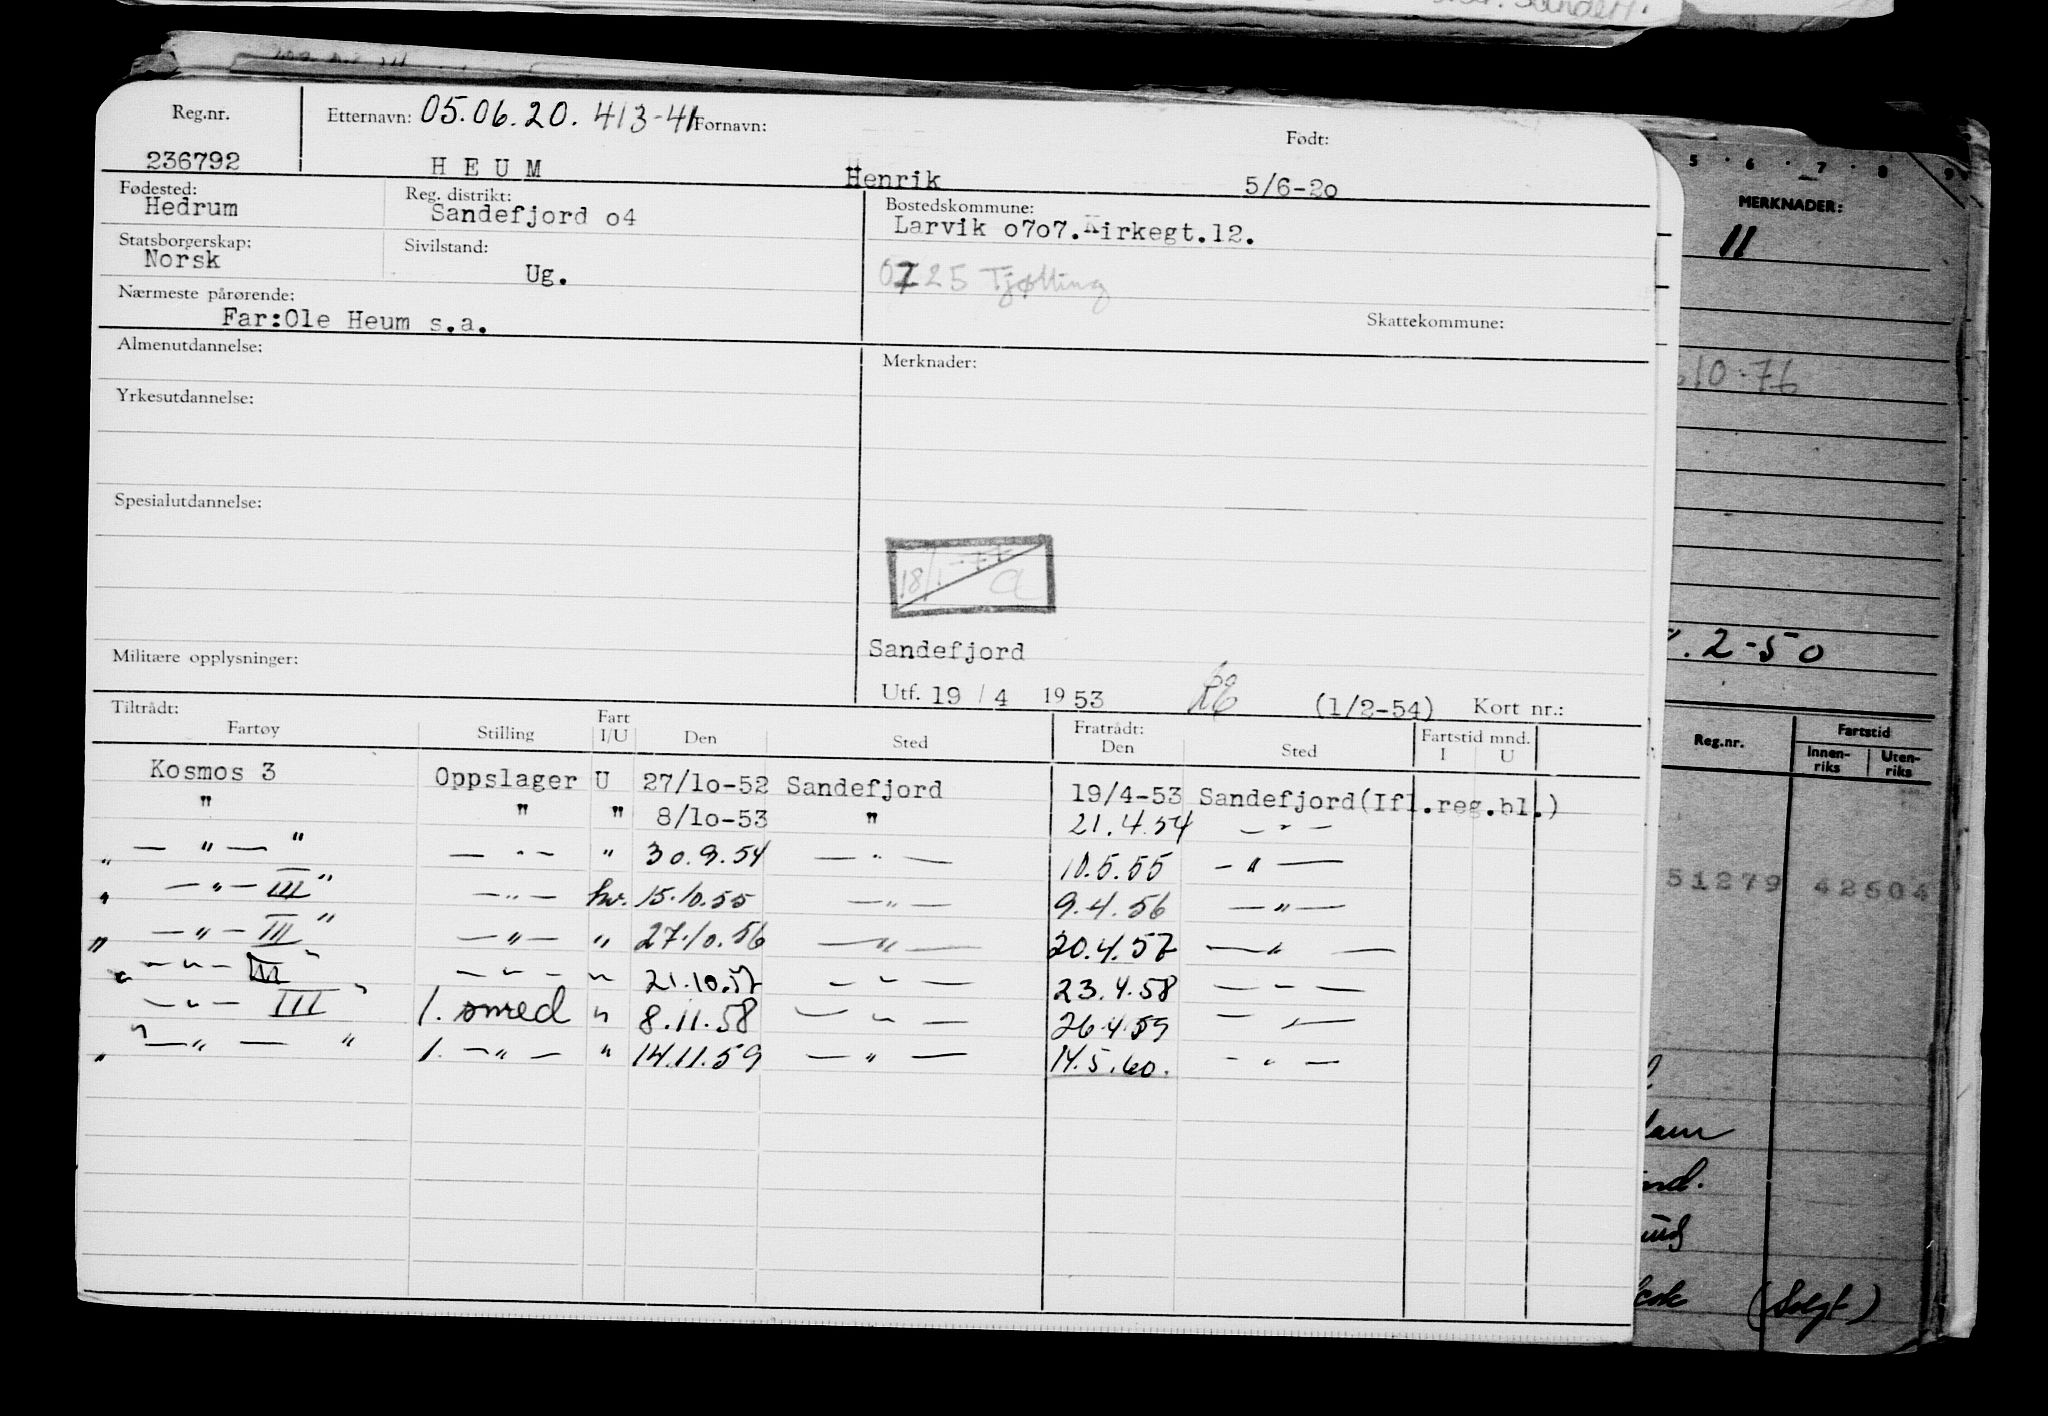 Reg.nr. Etternavn: 05.06.20. 413-41 Fornavn: Født:
236792 HEUM Henrik 5/6-2o
Fødested: Reg. distrikt: Bostedskommune:
Hedrum Sandefjord o4 Larvik o7o7.Kirkegt.12.
Statsborgerskap: Sivilstand:
Norsk Ug. 0725 Tjølling
Nærmeste pårørende: Skattekommune:
Far:Ole Heum s.a.
Almenutdannelse: Merknader:
Yrkesutdannelse:
Spesialutdannelse:
18/1-77 a
Sandefjord
Militære opplysninger: Utf. 19 / 4 19 53 (1/2-54) Kort nr.:
Tiltrådt: Fart Fratrådt: Fartstid mnd.
Fartøy Stilling I/U Den Sted Den Sted I U
Kosmos 3 Oppslager U 27/1o-52 Sandefjord 19/4-53 Sandefjord(Ifl.reg.bl.)
" " " 8/1o-53 " 21.4.54 — " —
„ — " — " — " — " 30.9.54 — " — 10.5.55 — " —
„ — " — III " — " — hv. 15.10.55 — " — 9.4.56 — " —
„ — " — III " — " — " 27.10.56 — " — 20.4.57 — " —
„ — " — III " — " — " 21.10.57 — " — 23.4.58 — " —
— " — III " 1. smed " 8.11.58 — " — 26.4.59 — " —
„ — " — " 1. — " — " 14.11.59 — " — 14.5.60. — " —
5 · 6 · 7 · 8 · 9
MERKNADER:
11
10-76
2-50
Reg.nr. Fartstid
Innen-riks Uten-riks
51279 42604
(Solgt)